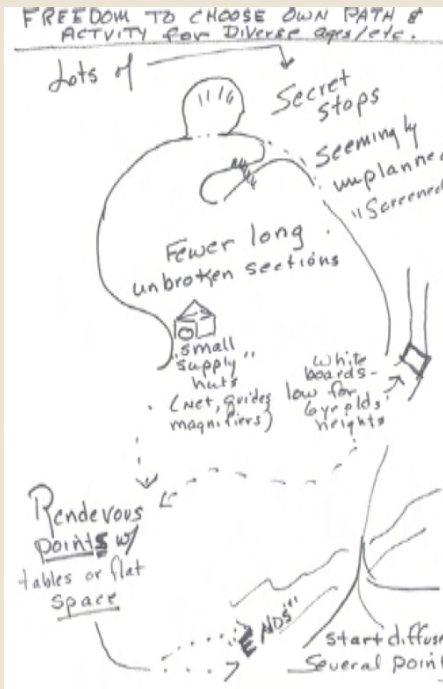 FREEDOM TO CHOOSE OWN PATH &
ACTVITY for Diverse ages/etc.
Lots of
Secret
stops
Seemingly
unplanned
"Screened
Fewer long
unbroken sections
"small
supply"
huts
(Net, guides
magnifiers)
White
boards-
low for
6yrolds'
heights
Rendevous
points w/
tables or flat
space
ENDS"
start diffuse
Several point